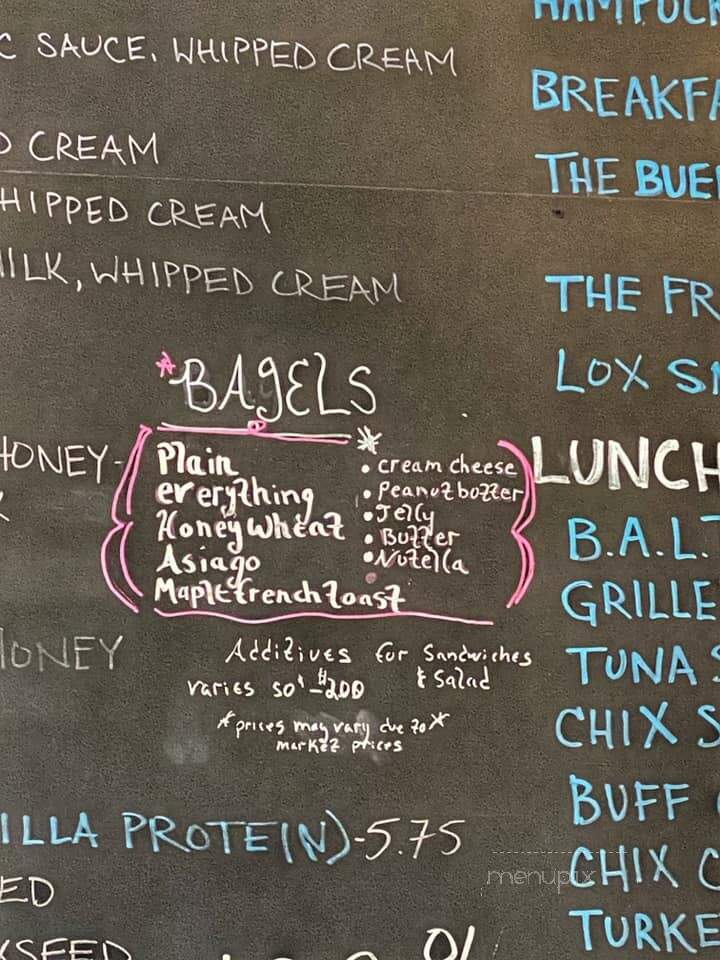 C SAUCE, WHIPPED CREAM
D CREAM
HIPPED CREAM
MILK, WHIPPED CREAM
*BAgELS
HONEY-
Plain
everything
Honey wheat
Asiago
Maple french toast
• cream cheese
• Peanut butter
• Jelly
• Butter
• Nutella
HONEY
Additives for Sandwiches
& Salad
varies 50¢-$2.00
*prices may vary due to*
market prices
ILLA PROTEIN)-5.75
ED
XSEED
HAMPUCK
BREAKFA
THE BUE
THE FR
LOX S
LUNCH
B.A.L.T
GRILLE
TUNA S
CHIX S
BUFF
CHIX C
TURKE
menupix